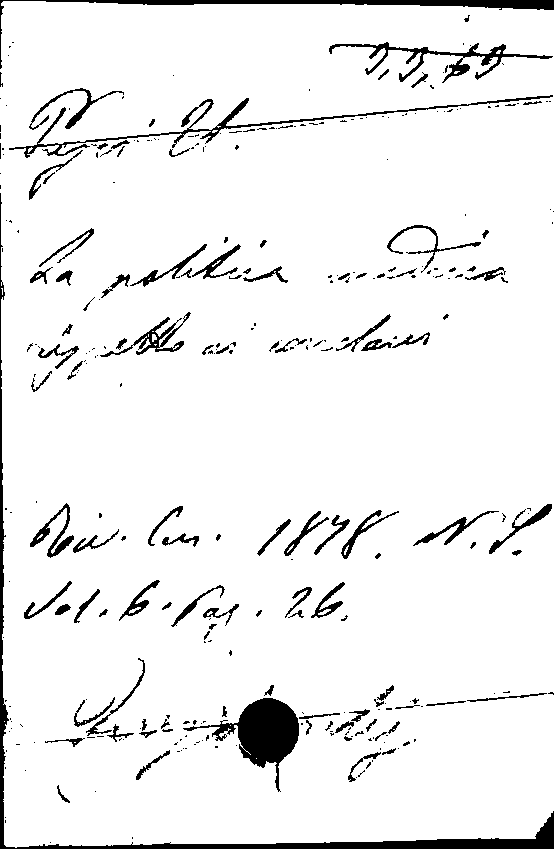 3, 3, 63
Pezzi U.
La politica medica
rispetto ai conclavi
Riv. Cur. 1878. N. S.
Vol. 6. Pag. 26.